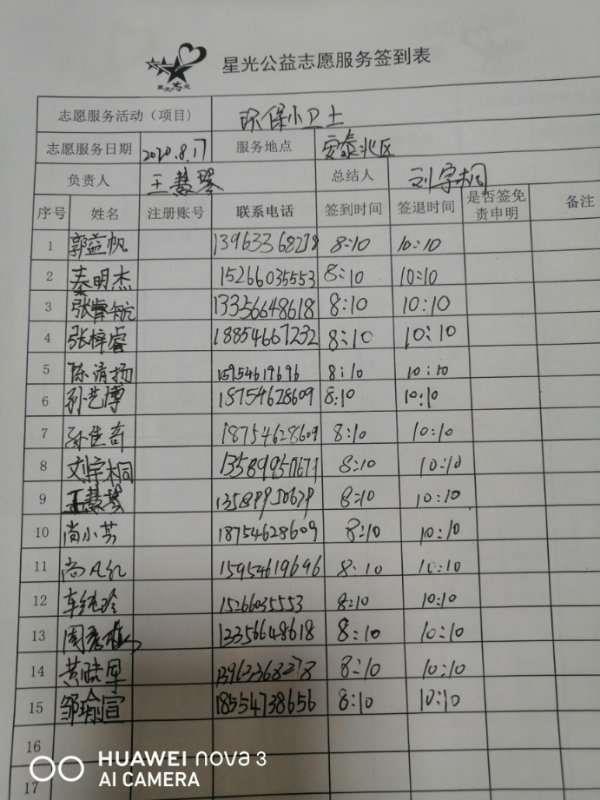 星光公益志愿服务签到表
志愿服务活动（项目） 环保小卫士
志愿服务日期 2020.8.17 服务地点 安泰北区
负责人 王慧琴 总结人 刘宇桐
序号 姓名 注册账号 联系电话 签到时间 签退时间 是否签免责申明 备注
1 郭益帆 13963368278 8:10 10:10
2 秦明杰 15266035553 8:10 10:10
3 张睿航 13356648618 8:10 10:10
4 张梓睿 18854667232 8:10 10:10
5 陈清扬 15954619696 8:10 10:10
6 孙艺博 18754628609 8:10 10:10
7 孙佳奇 18754628609 8:10 10:10
8 刘宇桐 13589950679 8:10 10:10
9 王慧琴 13589950679 8:10 10:10
10 尚小芳 18754628609 8:10 10:10
11 尚凡红 15954619696 8:10 10:10
12 车纯玲 15266035553 8:10 10:10
13 周秀 13356648618 8:10 10:10
14 黄晓军 13963368278 8:10 10:10
15 邹瑜宣 18554738656 8:10 10:10
16
17
HUAWEI nova 3
AI CAMERA